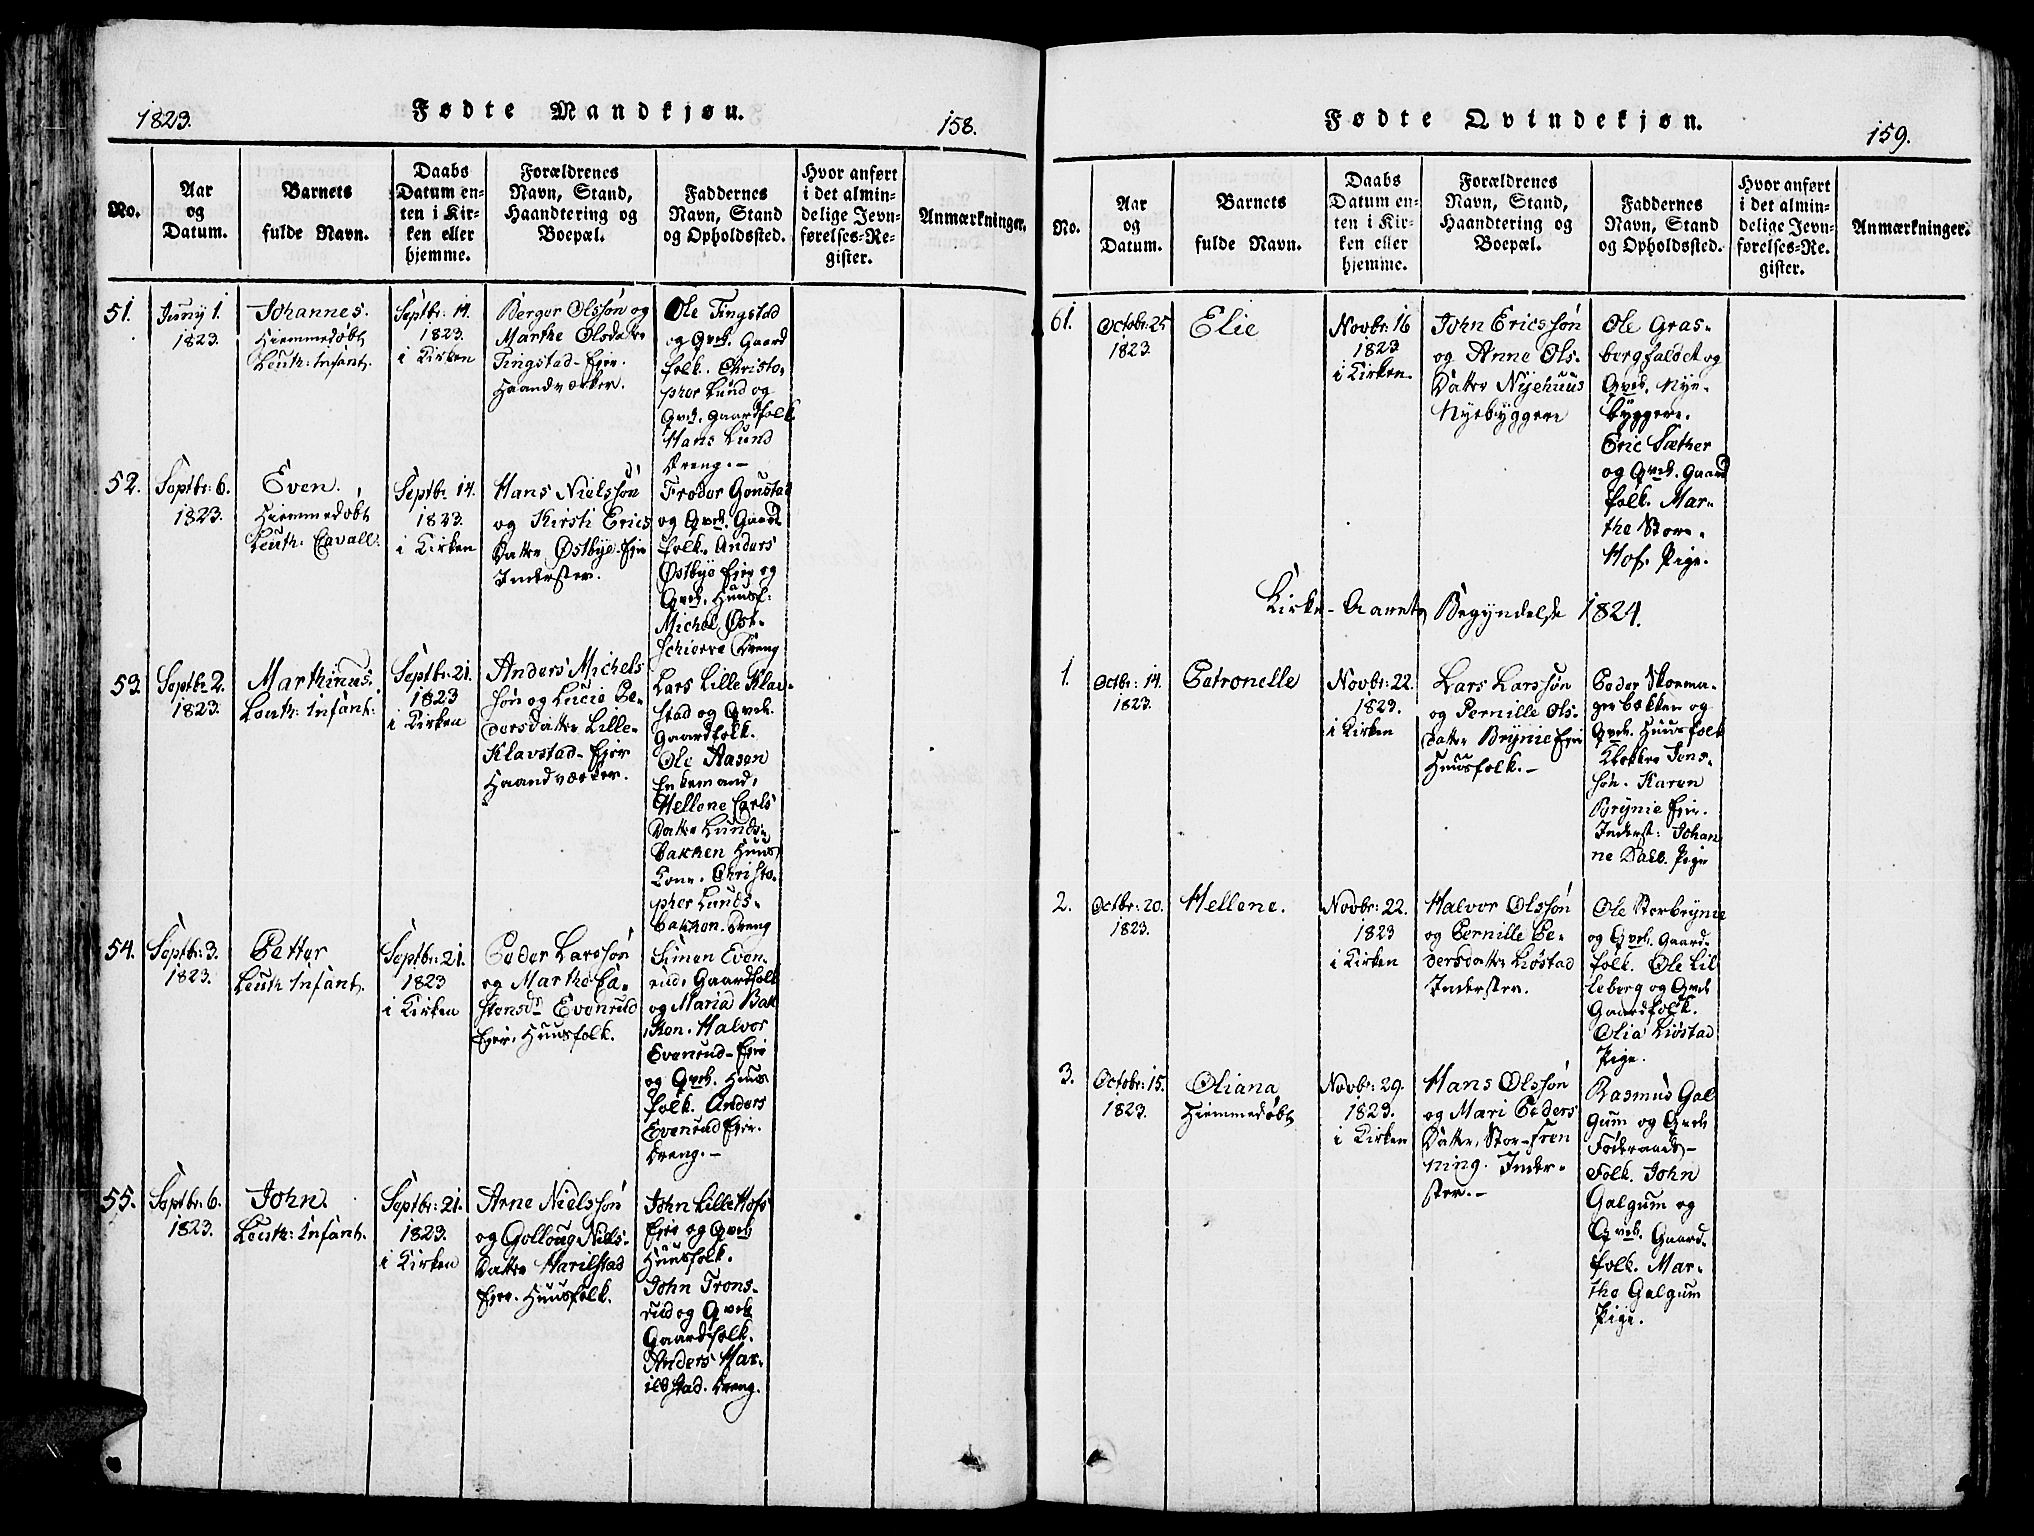 1823.
Fødte Mandkjøn.
158.
No.
Aar
og
Datum.
Barnets
fulde Navn.
Daabs
Datum en-
ten i Kir-
ken eller
hjemme.
Forældrenes
Navn, Stand,
Haandtering og
Boepæl.
Faddernes
Navn, Stand
og Opholdssted.
Hvor anført
i det almin-
delige Jevn-
førelses-Re-
gister.
Anmærkninger.
51.
Juny 1.
1823.
Johannes.
Hiemmedøbt
Leuth: Infant.
Septbr: 14.
1823.
i Kirken
Berger Olssøn og
Marthe Olsdatter
Tingstad-Ejer.
Haandværker.
Ole Tingstad
og Qvd. Gaard
folk. Christo-
pher Lund og
Qvd. Gaardfolk
Hans Lund
Dreng.-
52.
Septbr: 6.
1823.
Even.
Hiemmedøbt
Leuth: Cavall.
Septbr 14.
1823.
i Kirken
Hans Nielssøn
og Kirsti Erics
Datter Østbye-Eje
Inderster.
Frøder Gonstad
og Qvd. Gaard
folk. Anders
Østbye Eje og
Qvd. Huusf:
Michel Øst-
Dreng
53.
Septbr 2.
1823.
Marthinus.
Leuth: Infant:
Septbr: 21.
1823
i Kirken
Anders Michels
søn og Lucie Pe-
dersdatter Lille-
Klavstad-Ejer
Haandværker.
Lars Lille Klav-
stad og Qvd.
Gaardfolk.
Ole Aasen
Enkemand,
Hellene Carls
Datter Lunds-
bakken Huus
Kone. Christo-
pher Lunds-
bakken. Dreng
54.
Septbr: 3.
1823.
Petter
Leuth: Infant.
Septbr: 21.
1823
i Kirken
Peder Larssøn
og Marthe Pa-
stensdr Evenrud
Ejer. Huusfolk.
Simen Even-
rud, Gaardfolk
og Maria Bak
ken. Halvor
Evenrud-Eje
og Qvd. Huus
folk. Anders
Evenrud Ejer.
Dreng.-
55.
Septbr: 6.
1823.
John.
Leuth: Infant.
Septbr: 21.
1823.
i Kirken
Arne Nielssøn
og Golloug Niels-
Datter Harilstad
Ejer. Huusfolk.
John Lille Hofs
Eje og Qvd
Huusfolk.
John Trons-
rud og Qvd
Gaardfolk.
Anders Har-
ildstad. Dreng.
Fødte Qvindekjøn.
159.
No.
Aar
og
Datum.
Barnets
fulde Navn.
Daabs
Datum en-
ten i Kir-
ken eller
hjemme.
Forældrenes
Navn, Stand,
Haandtering og
Boepæl.
Faddernes
Navn, Stand
og Opholdssted.
Hvor anført
i det almin-
delige Jevn-
førelses-Re-
gister.
Anmærkninger.
61.
Octobr: 25
1823.
Elie
Novbr: 16
1823
i Kirken.
John Ericssøn
og Anne Ols-
Datter Nyehuus
Nyebyggere
Ole Gras-
bergfaldet og
Qvd. Nye-
byggere.
Eric Sæther
og Qvd. Gaard
folk. Mar-
the Store-
Hof. Pige.
Kirke-Aarets Begyndelse 1824.
1.
Octbr: 14.
1823.
Petronelle
Novbr: 22.
1823.
i Kirken
Lars Larssøn
og Pernille Ols-
datter Brynie Eje
Huusfolk.-
Peder Skoma-
gerbakken og
Qvd. Huusfolk
Klokker Jens-
søn. Karen
Brynie Eje.
Inderst: Johan
ne Dahl. Pige
2.
Octbr: 20.
1823.
Hellene.
Novbr: 22.
1823
i Kirken
Halvor Olssøn
og Pernille Pe-
dersdatter Liøstad
Inderster.
Ole Storbrynie
og Qvd. Gaard-
folk. Ole Lil
leberg og Qvd
Gaardfolk.
Olia Liøstad
Pige.
3.
Octobr: 15.
1823.
Oliana,
Hiemmedøbt
Novbr: 29.
1823.
i Kirken
Hans Olssøn
og Mari Peders
Datter, Stor-Fren
ning. Inder-
ster.-
Rasmus Gal
gum og Qvd
Føderaads-
Folk. John
Galgum og
Qvd. Gaard-
folk. Mar-
the Galgum
Pige.